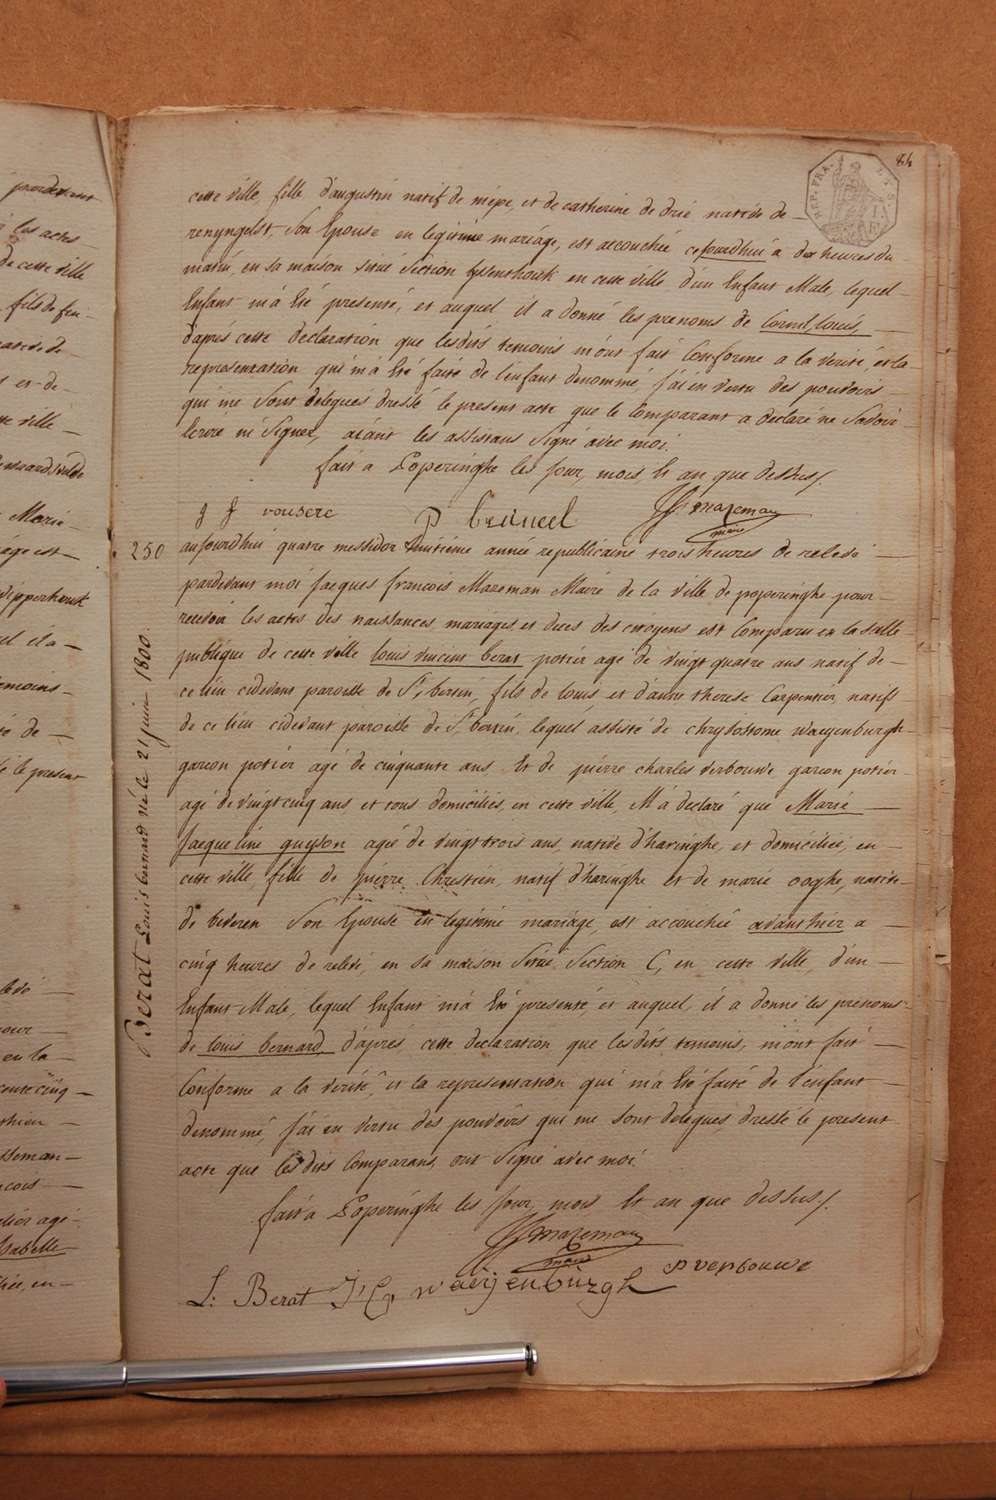 84
REP. FRA.
cette ville, fille d'augustin natif de mépe, et de catherine de drié native de
renyngelst, Son Epouse en legitime mariage, est accouchée cejourdhui a dix heures du
matin, en sa maison Situé Section en cette ville d'un Enfant Male, lequel
Enfant m'a Eté presenté, et auquel il a donné les prenoms de Cornil, louis,
d'aprés cette declaration que lesdits temoins m'ont fait Conforme a la verité, et la
representation qui m'a Eté faite de l'enfant denommé, j'ai en vertu des pouvoirs
qui me Sont delegues dressé le present acte que le Comparant a declaré ne Savoir
Ecrire ni Signer, aiant les assistans Signé avec moi.
fait a Poperinghe les Jour, mois Et an que dessus/.
J J vousere P bruneel JJ mazeman
maire
250
aujourdhui quatre messidor huitiéme année republicaine trois heures de relevé
pardevant moi Jacques francois Mazeman Maire de la ville de poperinghe pour
recevoir les actes des naissances mariages et deces des citoyens est Comparu en la Salle
publique de cette ville louis vincent berat potier agé de vingt quatre ans natif de
ce lieu cidevant paroisse de St bertin, fils de louis et d'anne therese Carpentier, natifs
de ce lieu cidevant paroisse de St bertin, lequel assisté de chrysostome waeyenburgh
garcon potier agé de cinquante ans Et de pierre charles verbouwe garcon potier
agé de vingt cinq ans, et tous domiciliés, en cette ville, M'a declaré que Marie
Jacqueline gueyson agée de vingt trois ans, native d'haringhe, et domiciliée, en
cette ville, fille de pierre Chrestien, natif d'haringhe et de marie ooghe, native
de beveren Son Epouse en legitime mariage, est accouchée avant hier a
cinq heures de relevé, en sa maison Situé Section C, en cette ville, d'un
Enfant Male, lequel Enfant m'a Eté presenté et auquel il a donné les prenoms
de louis bernard, d'aprés, cette declaration que lesdits temoins, m'ont fait
Conforme a la verité, et la representation qui m'a Eté faite de l'enfant
denommé, j'ai en vertu des pouvoirs qui me Sont delegues, dressé le present
acte que lesdits Comparans, ont Signé avec moi.
fait a Poperinghe les Jour, mois Et an que dessus/.
JJ mazeman
maire
L: Berat J: C: waeijenburgh P verbouwe
Berat Louis bernard né le 21 juin 1800